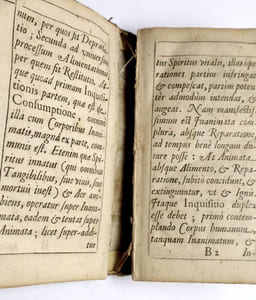 num, per quos fit Depræda-
tio ; Secunda ad vniuersum
processum Alimentationis,
per quem fit Restitutio. At-
que quoad primam Inquisi-
tionis partem, quæ est de
Consumptione
illa cum Corporibus Inani-
matis, magna ex parte, com-
munis est. Etenim quæ Spi-
ritus innatus (qui omnibus
Tangibilibus, siue viuis, siue
mortuis inest) & Aer am-
biens, operatur super Inani-
mata, eadem & tentat super
Animata ; licet super-addi-
tus
tus Spiritus vitalis, illas ope-
rationes partim infringat
& compescat, partim poten-
ter admodum intendat, &
augeat. Nam manifestis-
simum est Inanimata com-
plura, absque Reparatione,
ad tempus benè longum du-
rare posse : At Animata
absque Alimento, & Repa-
ratione, subitò concidunt, &
extinguuntur, vt & Ignis.
Itaque Inquisitio duplex
esse debet ; primò contem-
plando Corpus humanum,
tanquam Inanimatum, &
B 2
In-